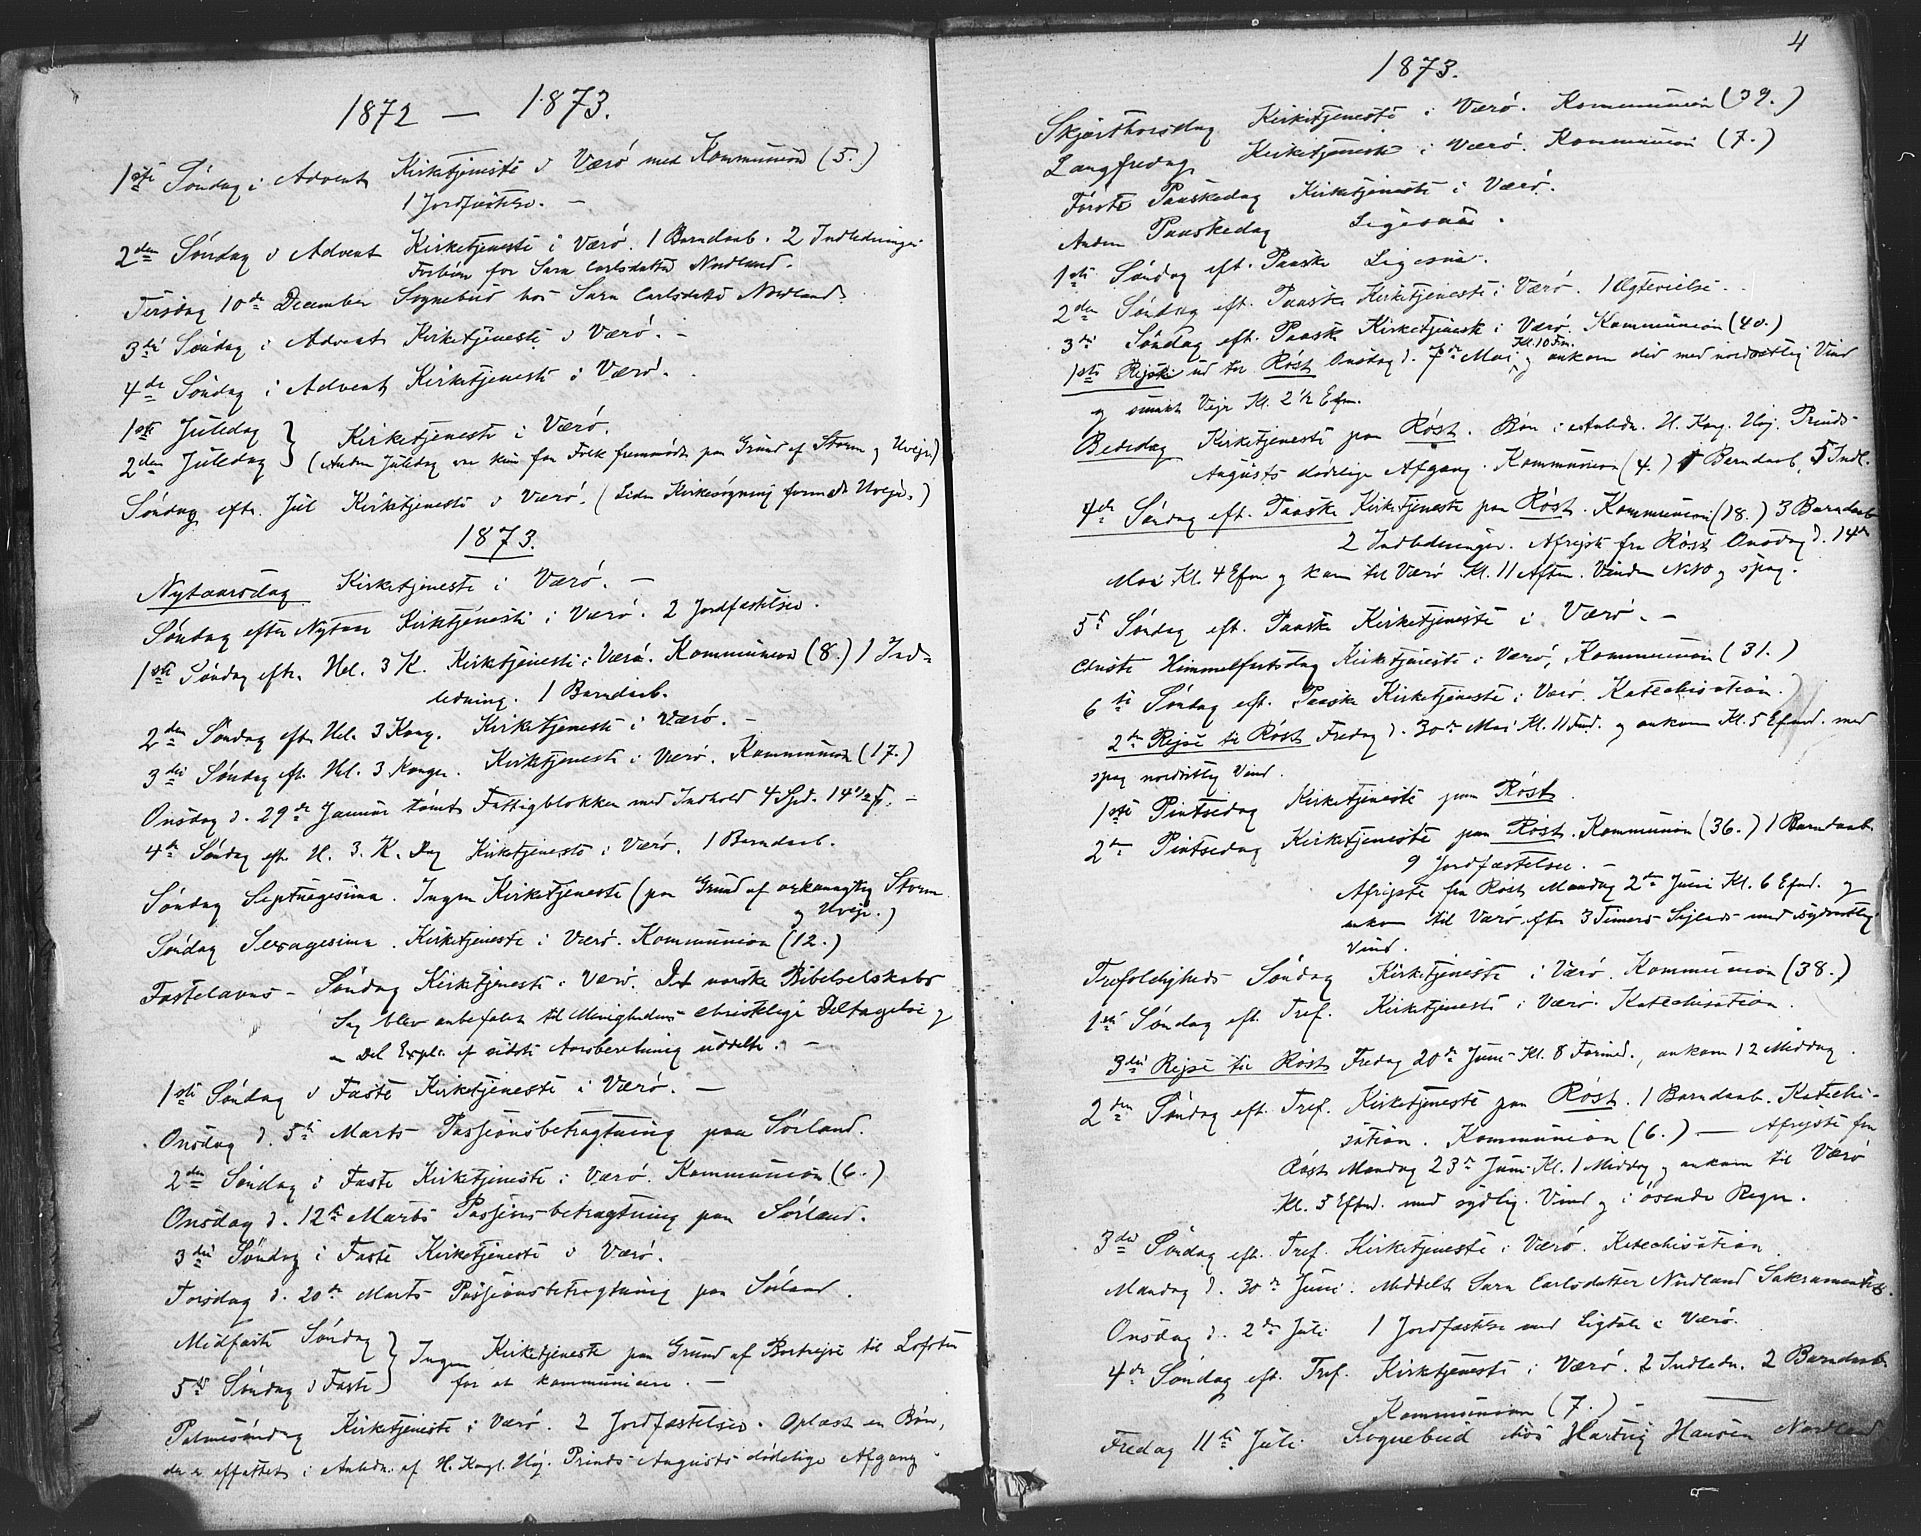 1872 — 1873.
1ste Søndag i Advent Kirketjeneste i Værø med Kommunion (5.)
1 Jordfæstelse. —
2den Søndag i Advent Kirketjeneste i Værø. 1 Barndaab. 2 Indledninger
Forbøn for Sara Carlsdatter Nordland.
Tirsdag 10de December Sognebud hos Sara Carlsdatter Nordland.
3die Søndag i Advent Kirketjeneste i Værø. —
4de Søndag i Advent Kirketjeneste i Værø.
1ste Juledag } Kirketjeneste i Værø.
2den Juledag } (Anden Juledag var kun faa Folk fremmødt paa Grund af Storm og Uveir)
Søndag efter Jul Kirketjeneste i Værø. (Liden Kirkesøgning formedst Uveir.)
1873.
Nytaarsdag Kirketjeneste i Værø. —
Søndag efter Nytaar Kirketjeneste i Værø. 2 Jordfæstelser.
1ste Søndag eftr. Hel. 3 K. Kirketjeneste i Værø. Kommunion (8.) 1 Ind-
ledning. 1 Barndaab.
2den Søndag eft. Hel. 3 Kong. Kirketjeneste i Værø. —
3die Søndag eft. Hel. 3 Konger. Kirketjeneste i Værø. Kommunion (17.)
Onsdag d. 29de Januar tømt Fattigblokken med Indhold 4 Spd. 14 1/2 ſ. —
4de Søndag eft. H. 3. K. Dag Kirketjeneste i Værø. 1 Barndaab.
Søndag Septuagesima. Ingen Kirketjeneste (paa Grund af orkanagtig Storm
og Uveir.)
Søndag Sexagesima. Kirketjeneste i Værø. Kommunion (12.)
Fastelavns - Søndag Kirketjeneste i Værø. Det norske Bibelselskabs
Sag blev anbefalet til Menighedens christelige Deltagelse og
en Del Expl. af sidste Aarsberetning uddelte. —
1ste Søndag i Faste Kirketjeneste i Værø. —
Onsdag d. 5te Marts Passionsbetragtning paa Sørland.
2den Søndag i Faste Kirketjeneste i Værø. Kommunion (6.)
Onsdag d. 12te Marts Passionsbetragtning paa Sørland.
3die Søndag i Faste Kirketjeneste i Værø.
Torsdag d. 20de Marts Passionsbetragtning paa Sørland.
Midfaste Søndag } Ingen Kirketjeneste paa Grund af Bortreise til Lofoten
5te Søndag i Faste } for at kommunicere. —
Palmesøndag Kirketjeneste i Værø. 2 Jordfæstelser. Oplæst en Bøn,
der er affattet i Anledn. af H. Kngl. Høj. Prinds Augusts dødelige Afgang
4
1873.
Skjærthorsdag Kirketjeneste i Værø. Kommunion (39.)
Langfredag Kirketjeneste i Værø. Kommunion (7.)
Første Paaskedag Kirketjeneste i Værø.
Anden Paaskedag Ligesaa.
1ste Søndag eft. Paaske Ligesaa.
2den Søndag eft. Paaske Kirketjeneste i Værø. 1 Ægtevielse.
3die Søndag eft. Paaske Kirketjeneste i Værø. Kommunion (40.)
1ste Rejse ud til Røst Onsdag d. 7de Mai Kl. 10 Fm. og ankom did med nordostlig Vind
og smukt Vejr Kl. 2 1/2 Efm.
Bededag Kirketjeneste paa Røst. Bøn i Anledn. H. Kng. Høj. Prinds
Augusts dødelige Afgang. Kommunion (4.) 1 Barndaab, 5 Indl.
4de Søndag eft. Paaske Kirketjeneste paa Røst. Kommunion (18.) 3 Barndaab
2 Indledninger. Afrejst fra Røst Onsdag d. 14de
Mai Kl. 4 Efm og kom til Værø Kl. 11 Aften. Vinden NNO og spag.
5te Søndag eft. Paaske Kirketjeneste i Værø. —
Christi Himmelfartsdag Kirketjeneste i Værø, Kommunion (31.)
6te Søndag eft. Paaske Kirketjeneste i Værø. Katechisation.
2den Rejse til Røst Fredag d. 30de Mai Kl. 11 Fmd. og ankom Kl. 5 Efmd. med
spag nordostlig Vind.
1ste Pintsedag Kirketjeneste paa Røst.
2den Pintsedag Kirketjeneste paa Røst. Kommunion (36.) 1 Barndaab.
9 Jordfæstelser. —
Afrejste fra Røst Mandag 2den Juni Kl. 6 Efmd. og
ankom til Værø efter 3 Timers Sejlads med sydvestlig
Vind.
Trefoldigheds Søndag Kirketjeneste i Værø. Kommunion (38.)
1ste Søndag eft. Tref. Kirketjeneste i Værø. Katechisation.
3die Rejse til Røst Fredag 20de Juni Kl. 8 Formd., ankom 12 Middag.
2den Søndag eft. Tref. Kirketjeneste paa Røst. 1 Barndaab. Kateche-
sation. Kommunion (6.) — Afrejste fra
Røst Mandag 23de Juni Kl. 1 Middag og ankom til Værø
Kl. 5 Eftmd. med sydlig. Vind og i øsende Regn.
3die Søndag eft. Tref. Kirketjeneste i Værø. Katechisation.
Mandag d. 30de Juni. Meddelt Sara Carlsdatter Nordland Sakramentet.
Onsdag d. 2den Juli 1 Jordfæstelse med Ligtale i Værø.
4de Søndag eft. Tref. Kirketjeneste i Værø. 2 Indledn. 2 Barndaab.
Kommunion (7.) —
Fredag 11te Juli Sognebud hos Hartvig Hansen Nordland